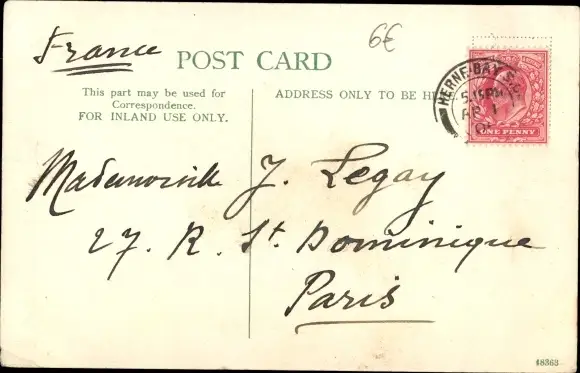 France
6€
POST CARD
This part may be used for
Correspondence.
FOR INLAND USE ONLY.
ADDRESS ONLY TO BE
HERNE-BAY
5.15PM
AP 1
ONE PENNY
Mademoiselle J. Legay
27. R. St. Dominique
Paris
48363